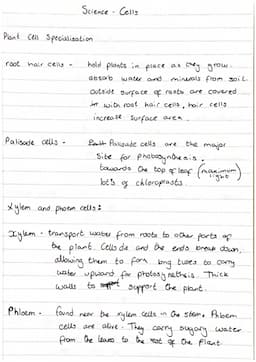 Science - Cells
Plant Cell Specialisation
root hair cells - hold plants in place as they grow.
absorb water and minerals from soil.
outside surface of roots are covered
with root hair cells, hair cells
increase surface area.
Palisade cells - Palisade cells are the major
site for photosynthesis.
towards the top of leaf (maximum light)
lots of chloroplasts.
Xylem and phoem cells:
Xylem - transport water from roots to other parts of
the plant. Cells die and the ends break down,
allowing them to form long tubes to carry
water upward for photosynthesis. Thick
walls to support the plant.
Phloem - found near the xylem cells in the stem. Phloem
cells are alive. They carry sugary water
from the leaves to the rest of the plant.